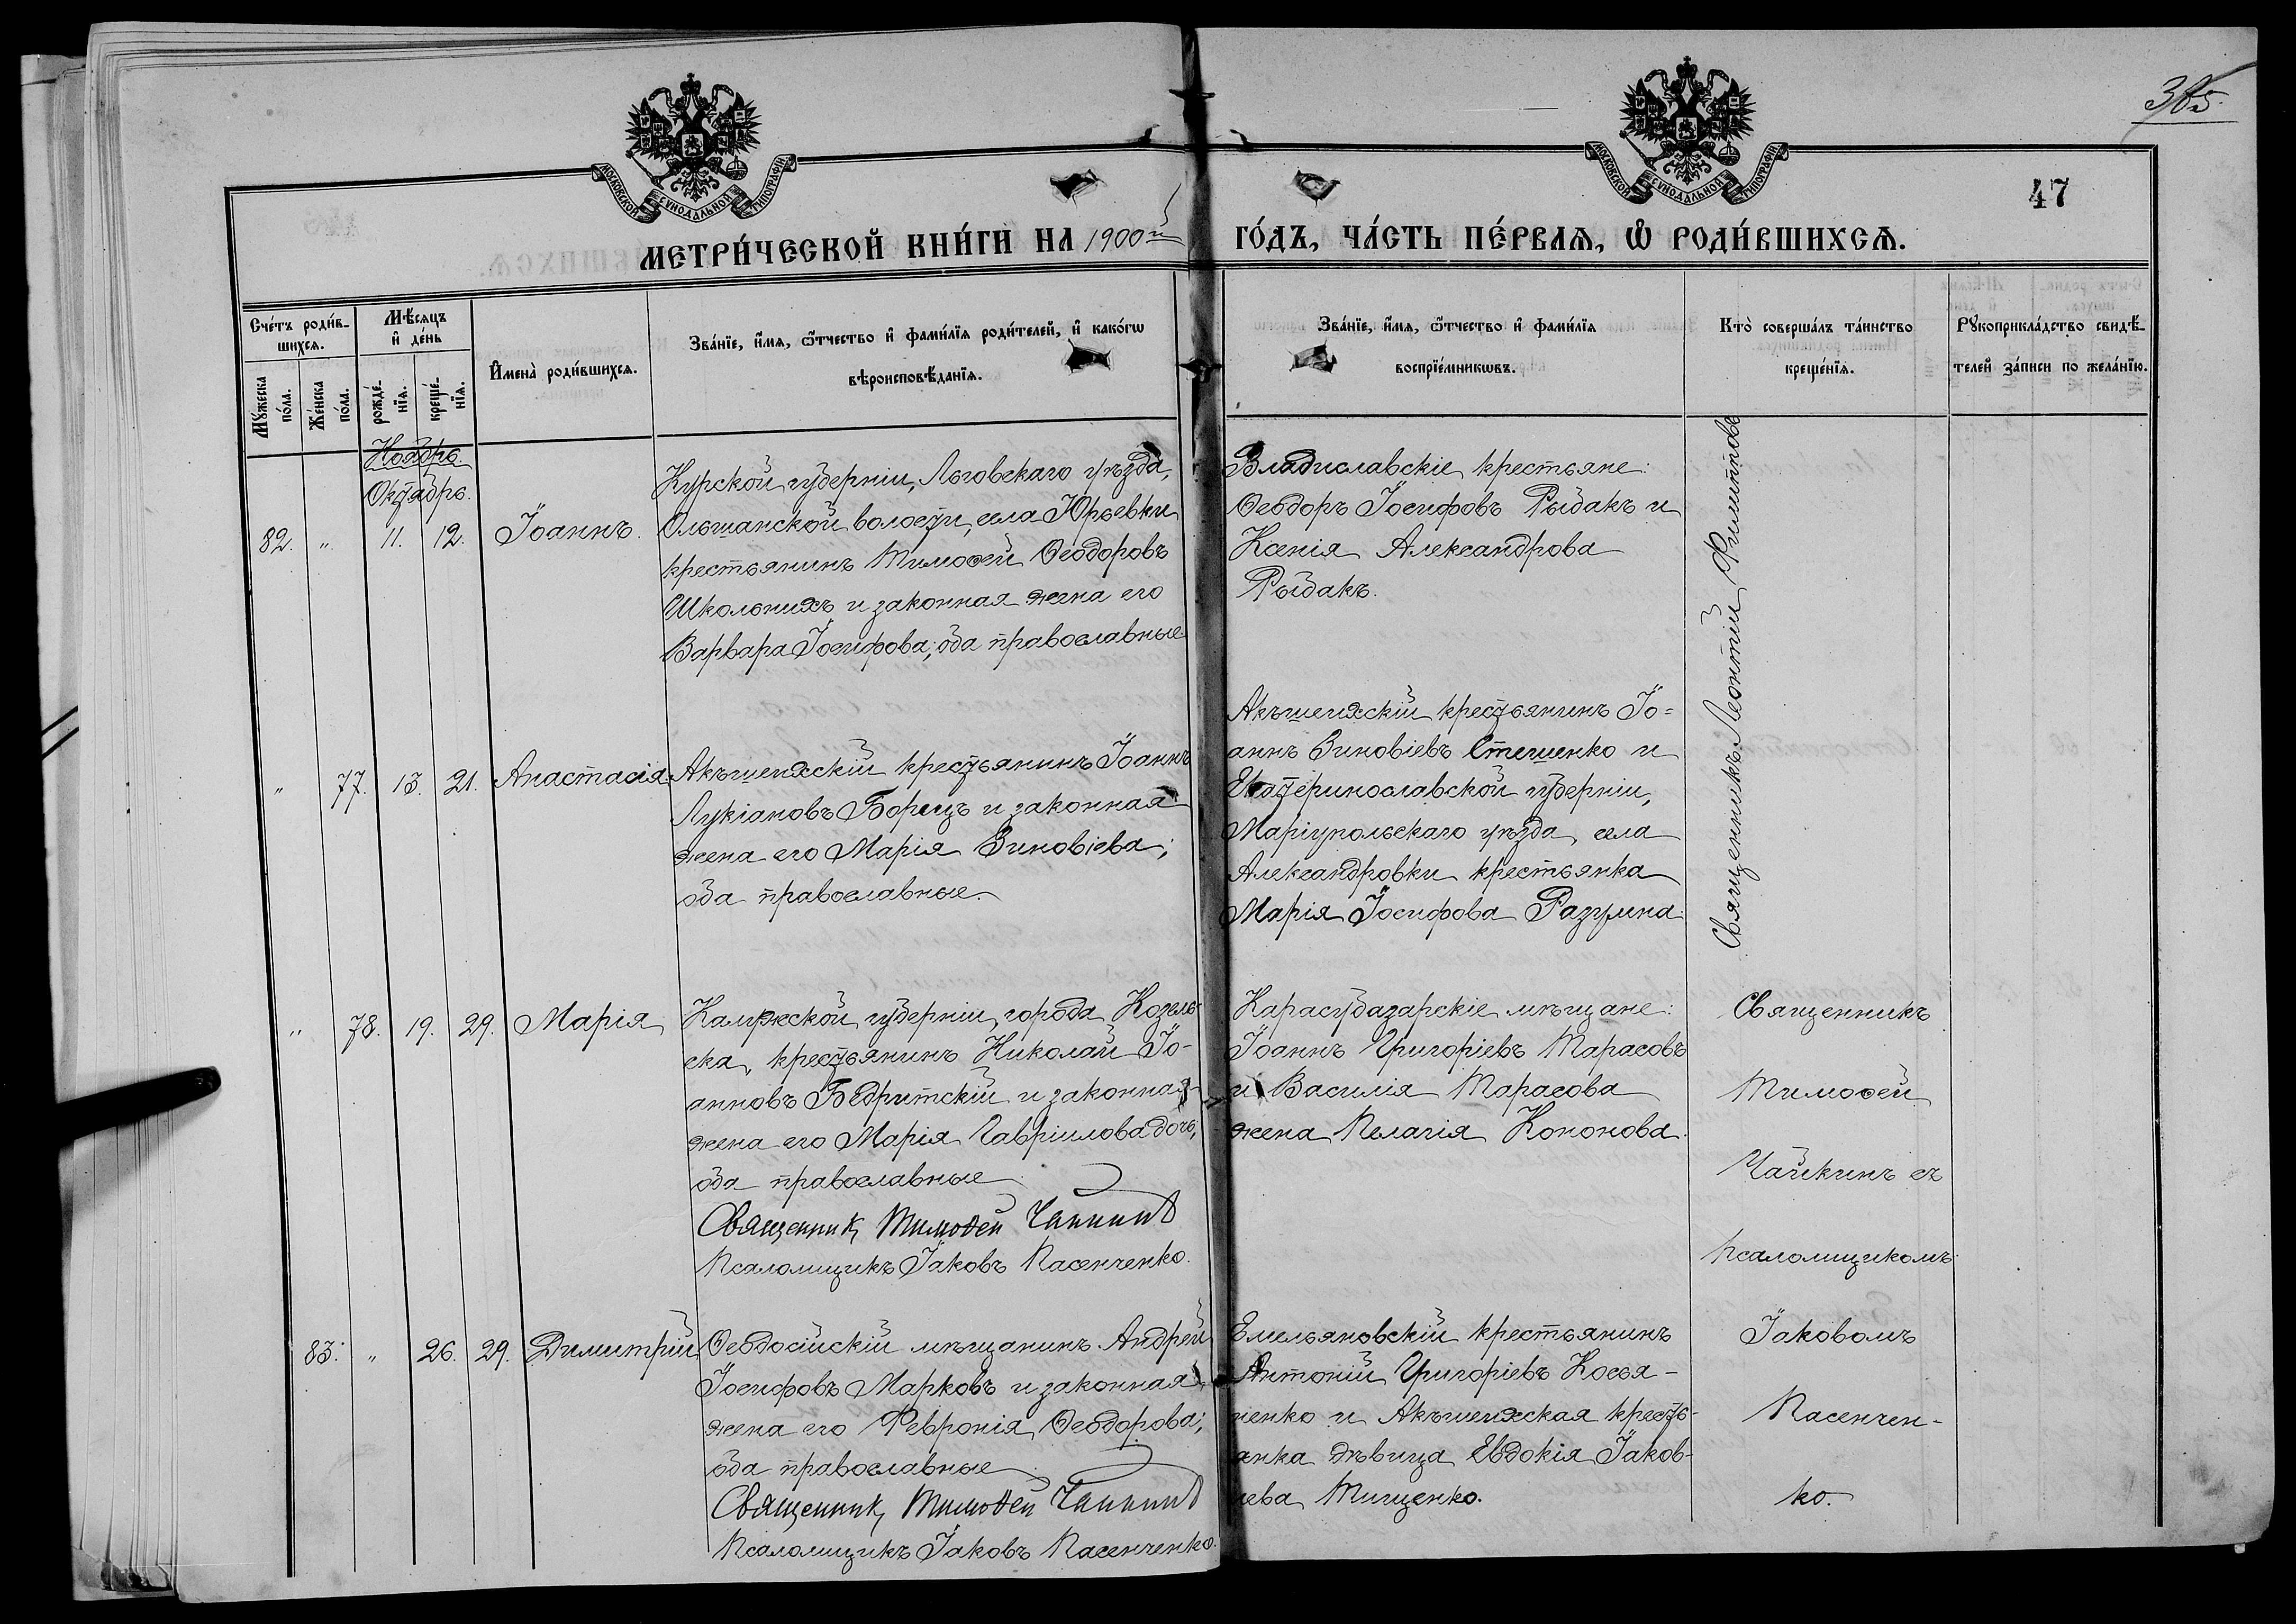 385.
47
МОСКОВСКОЙ СѴНОДАЛЬНОЙ ТИПОГРАФІИ
МОСКОВСКОЙ СѴНОДАЛЬНОЙ ТИПОГРАФІИ
МЕТРИ́ЧЕСКОЙ КНИ́ГИ НА 1900й ГО́ДЪ, ЧА́СТЬ ПЕ́РВАЯ, Ѡ РОДИ́ВШИХСЯ.
Сче́тъ роди́в-
шихся.
Му́жеска
по́ла.
Же́нска
по́ла.
Мѣ́сяцъ
и҆ де́нь
рожде́-
нїя.
креще́-
нїя.
И҆мена̀ роди́вшихся.
Зва́нїе, и҆́мя, ѻ҆́тчество и҆ фами́лїя роди́телей, и҆ како́гѡ
вѣроисповѣ́данїя.
Зва́нїе, и҆́мя, ѻ҆́тчество и҆ фами́лїя
воспрїе́мникѡвъ.
Кто̀ соверша́лъ та́инство
креще́нїя.
Рꙋкоприкла́дство свидѣ́-
телей за́писи по жела́нїю.
Ноябрь.
Октябрь.
82. " 11. 12. Іоаннъ.
Курской губерніи, Льговскаго уѣзда,
Ольшанской волости, села Юрьевки
крестьянинъ Тимоѳей Ѳеодоровъ
Школьнихъ и законная жена его
Варвара Іосифова; оба православные
Владиславскіе крестьяне:
Ѳеодоръ Іосифовъ Рыбакъ и
Ксенія Александрова
Рыбакъ.
Священникъ Леонтій
" 77. 13. 21. Анастасія.
Акъшеихскій крестьянинъ Іоаннъ
Лукіановъ Борецъ и законная
жена его Марія Зиновіева;
оба православные.
Акъшеихскій крестьянинъ Іо-
аннъ Зиновіевъ Стешенко и
Екатеринославской губерніи,
Маріупольскаго уѣзда, села
Александровки крестьянка
Марія Іосифова Разумна.
" 78. 19. 29. Марія
Калужской губерніи, города Козель-
ска, крестьянинъ Николай Іо-
анновъ Бедритскій и законная
жена его Марія Гавріилова дочь,
оба православные.
Священникъ Тимоѳей Чайкинъ
Псаломщикъ Іаковъ Пасенченко.
Карасубазарскіе мѣщане:
Іоаннъ Григоріевъ Тарасовъ
и Василія Тарасова
жена Пелагія Кононова.
Священникъ
Тимоѳей
Чайкинъ съ
псаломщикомъ
Іаковомъ
Пасенчен-
ко.
83. " 26. 29. Димитрій
Ѳеодосійскій мѣщанинъ Андрей
Іосифовъ Марковъ и законная
жена его Февронія Ѳеодорова;
оба православные.
Священникъ Тимоѳей Чайкинъ
Псаломщикъ Іаковъ Пасенченко.
Емельяновскій крестьянинъ
Антоній Григоріевъ Кося-
ненко и Акъшеихская кресть-
янка дѣвица Евдокія Іаков-
лева Тищенко.